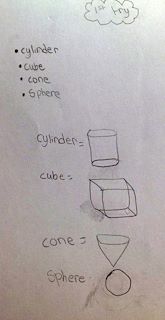 1st try
• cylinder
• cube
• cone
• Sphere
cylinder =
cube =
cone =
Sphere